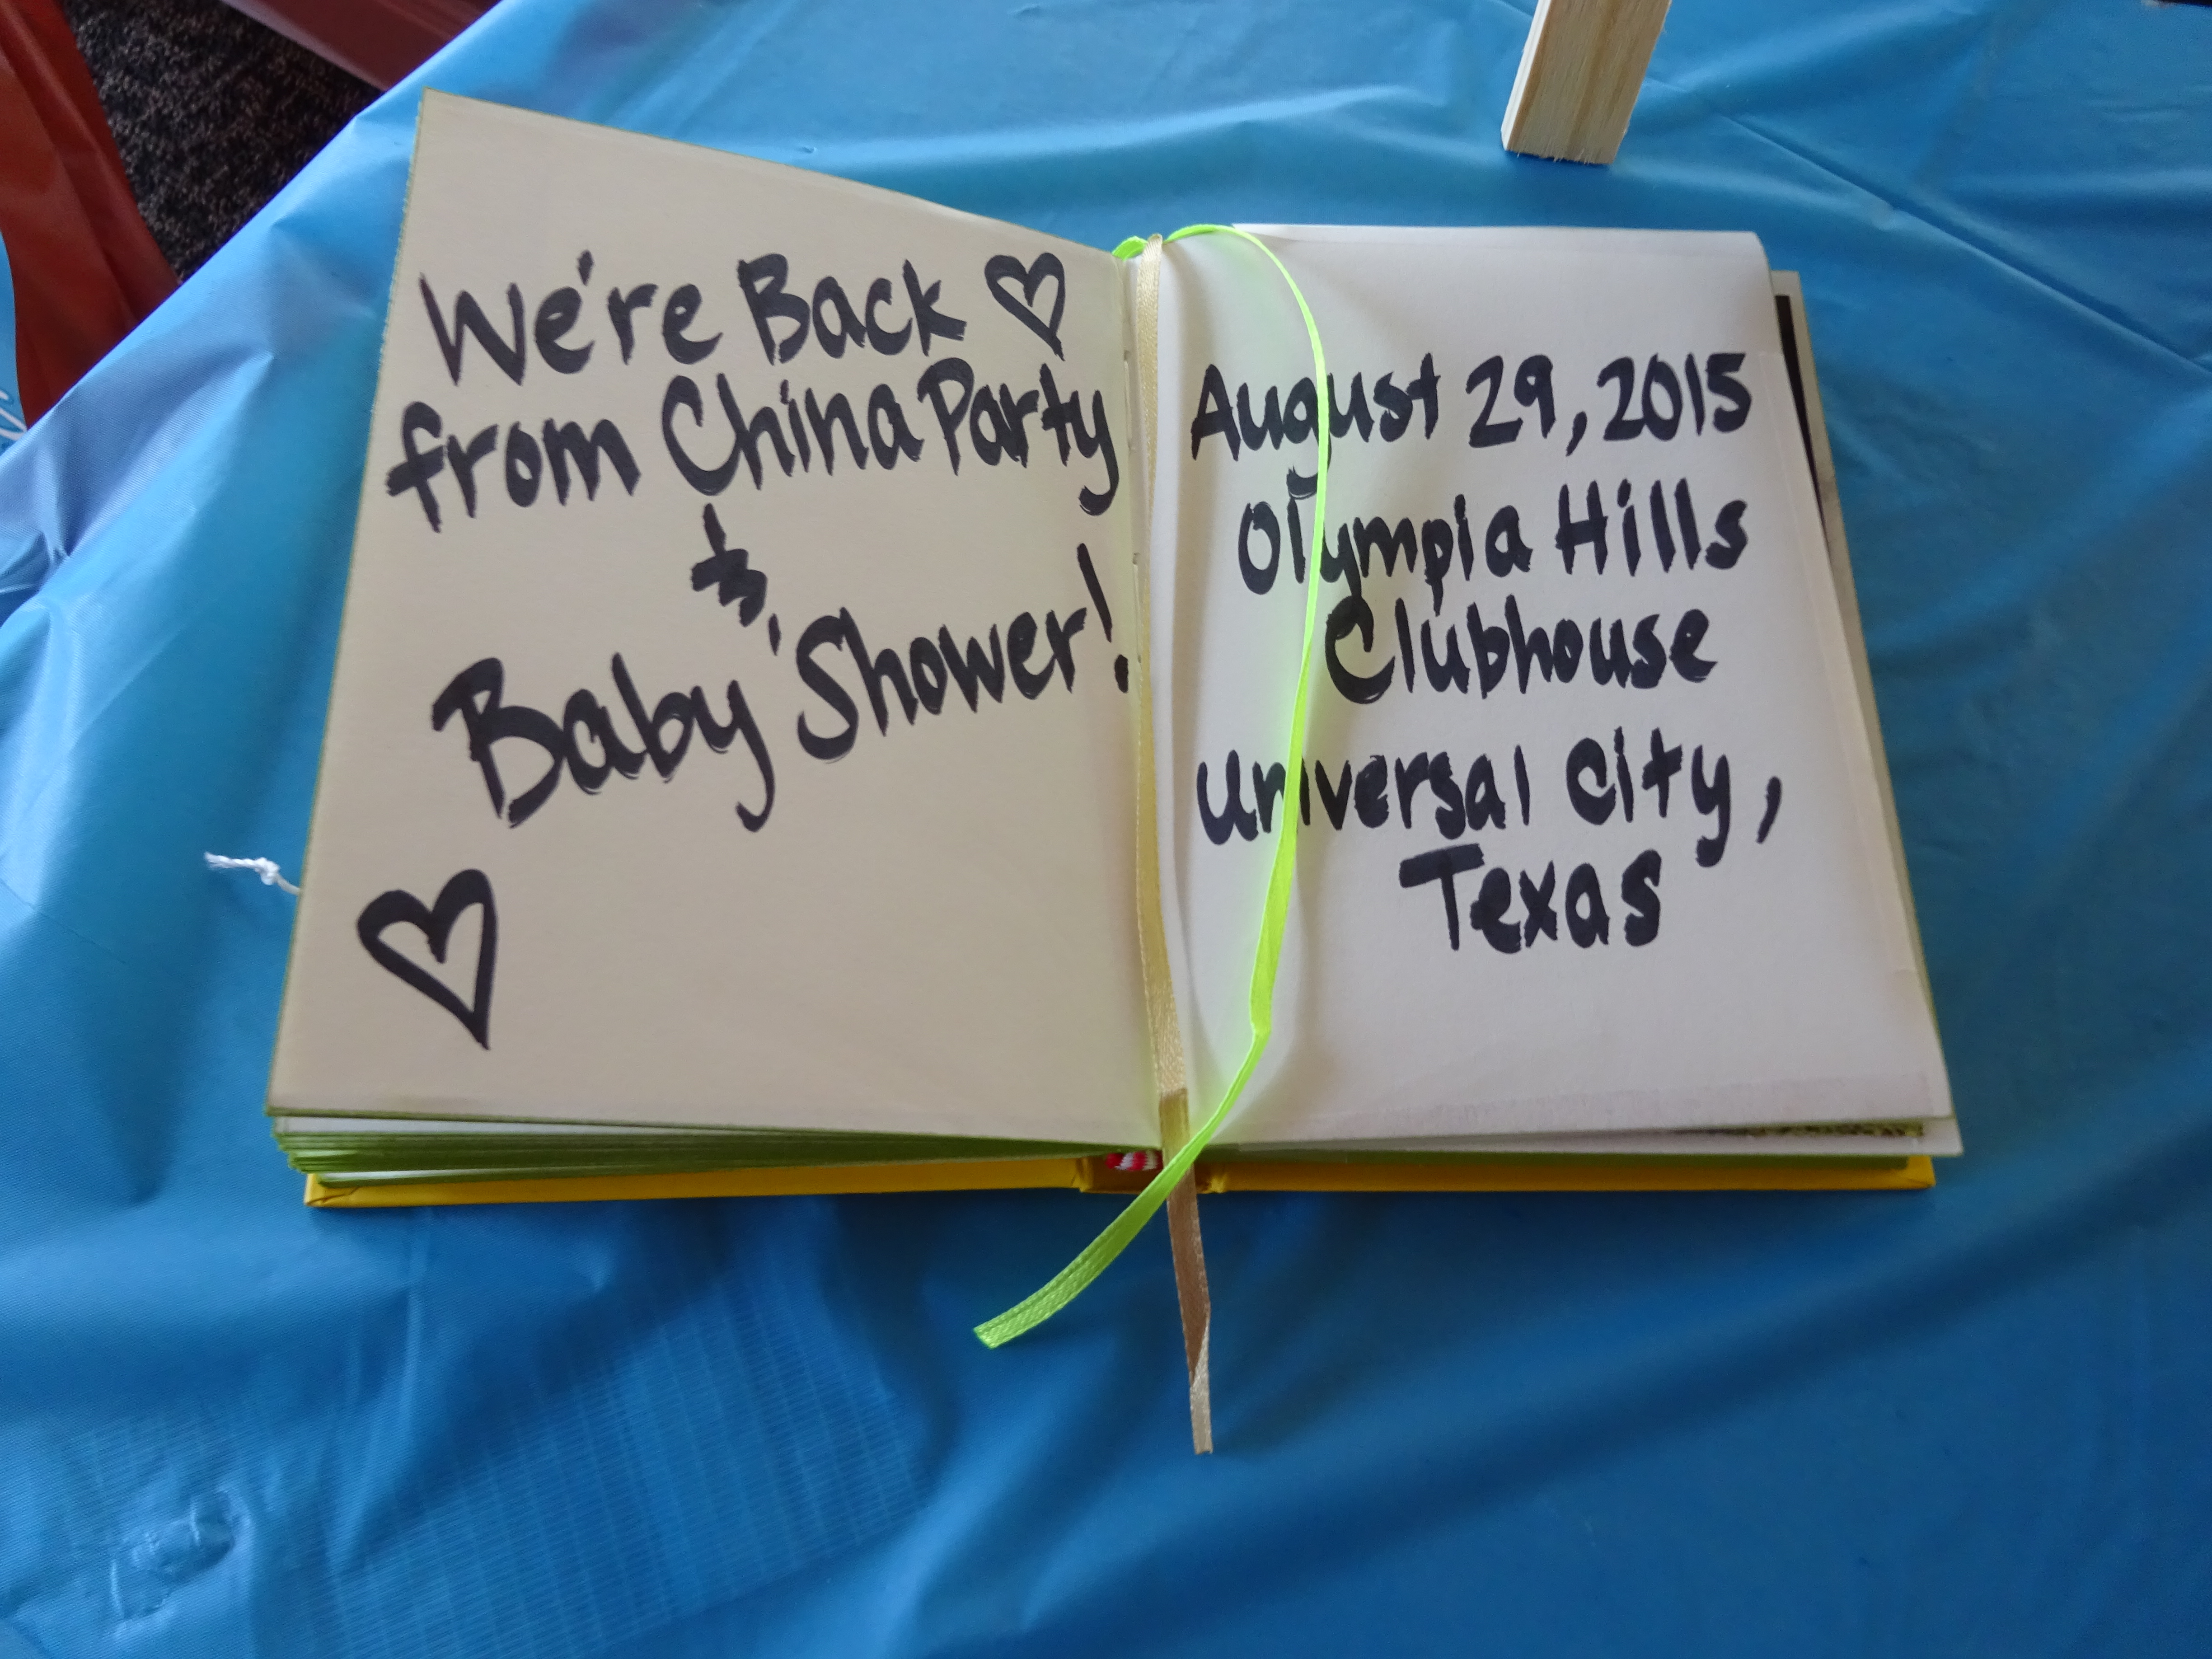 We're Back
from China Party
&
Baby Shower!
August 29, 2015
Olympia Hills
Clubhouse
Universal City,
Texas